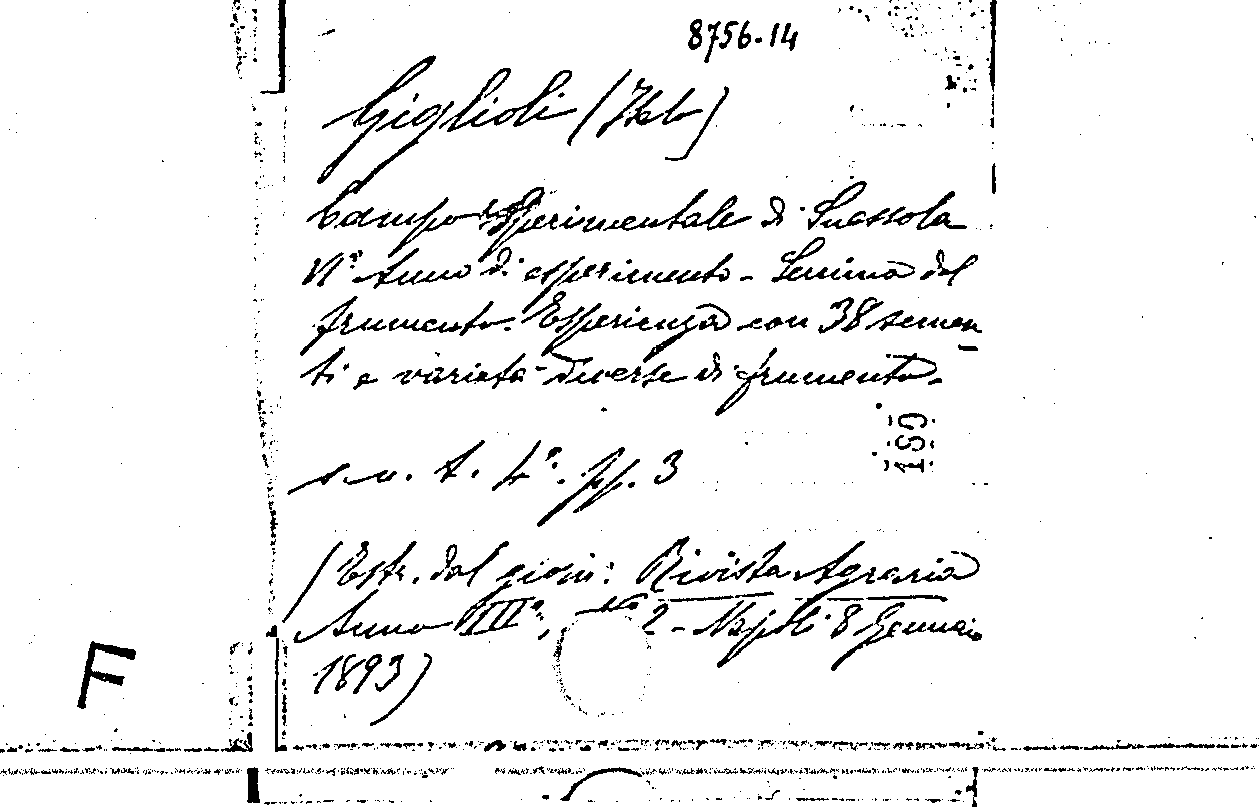 8756-14
Giglioli (Ital)
Campo Sperimentale di Suessola
Vº Anno di esperimento - Semina del
frumento. Esperienza con 38 semen
ti e varietà diverse di frumento.
169
s. n. t. 4º. pp. 3
(Estr. dal giorn: Rivista Agraria
Anno III°, Nº 2 - Napoli 8 Gennaio
1893)
F